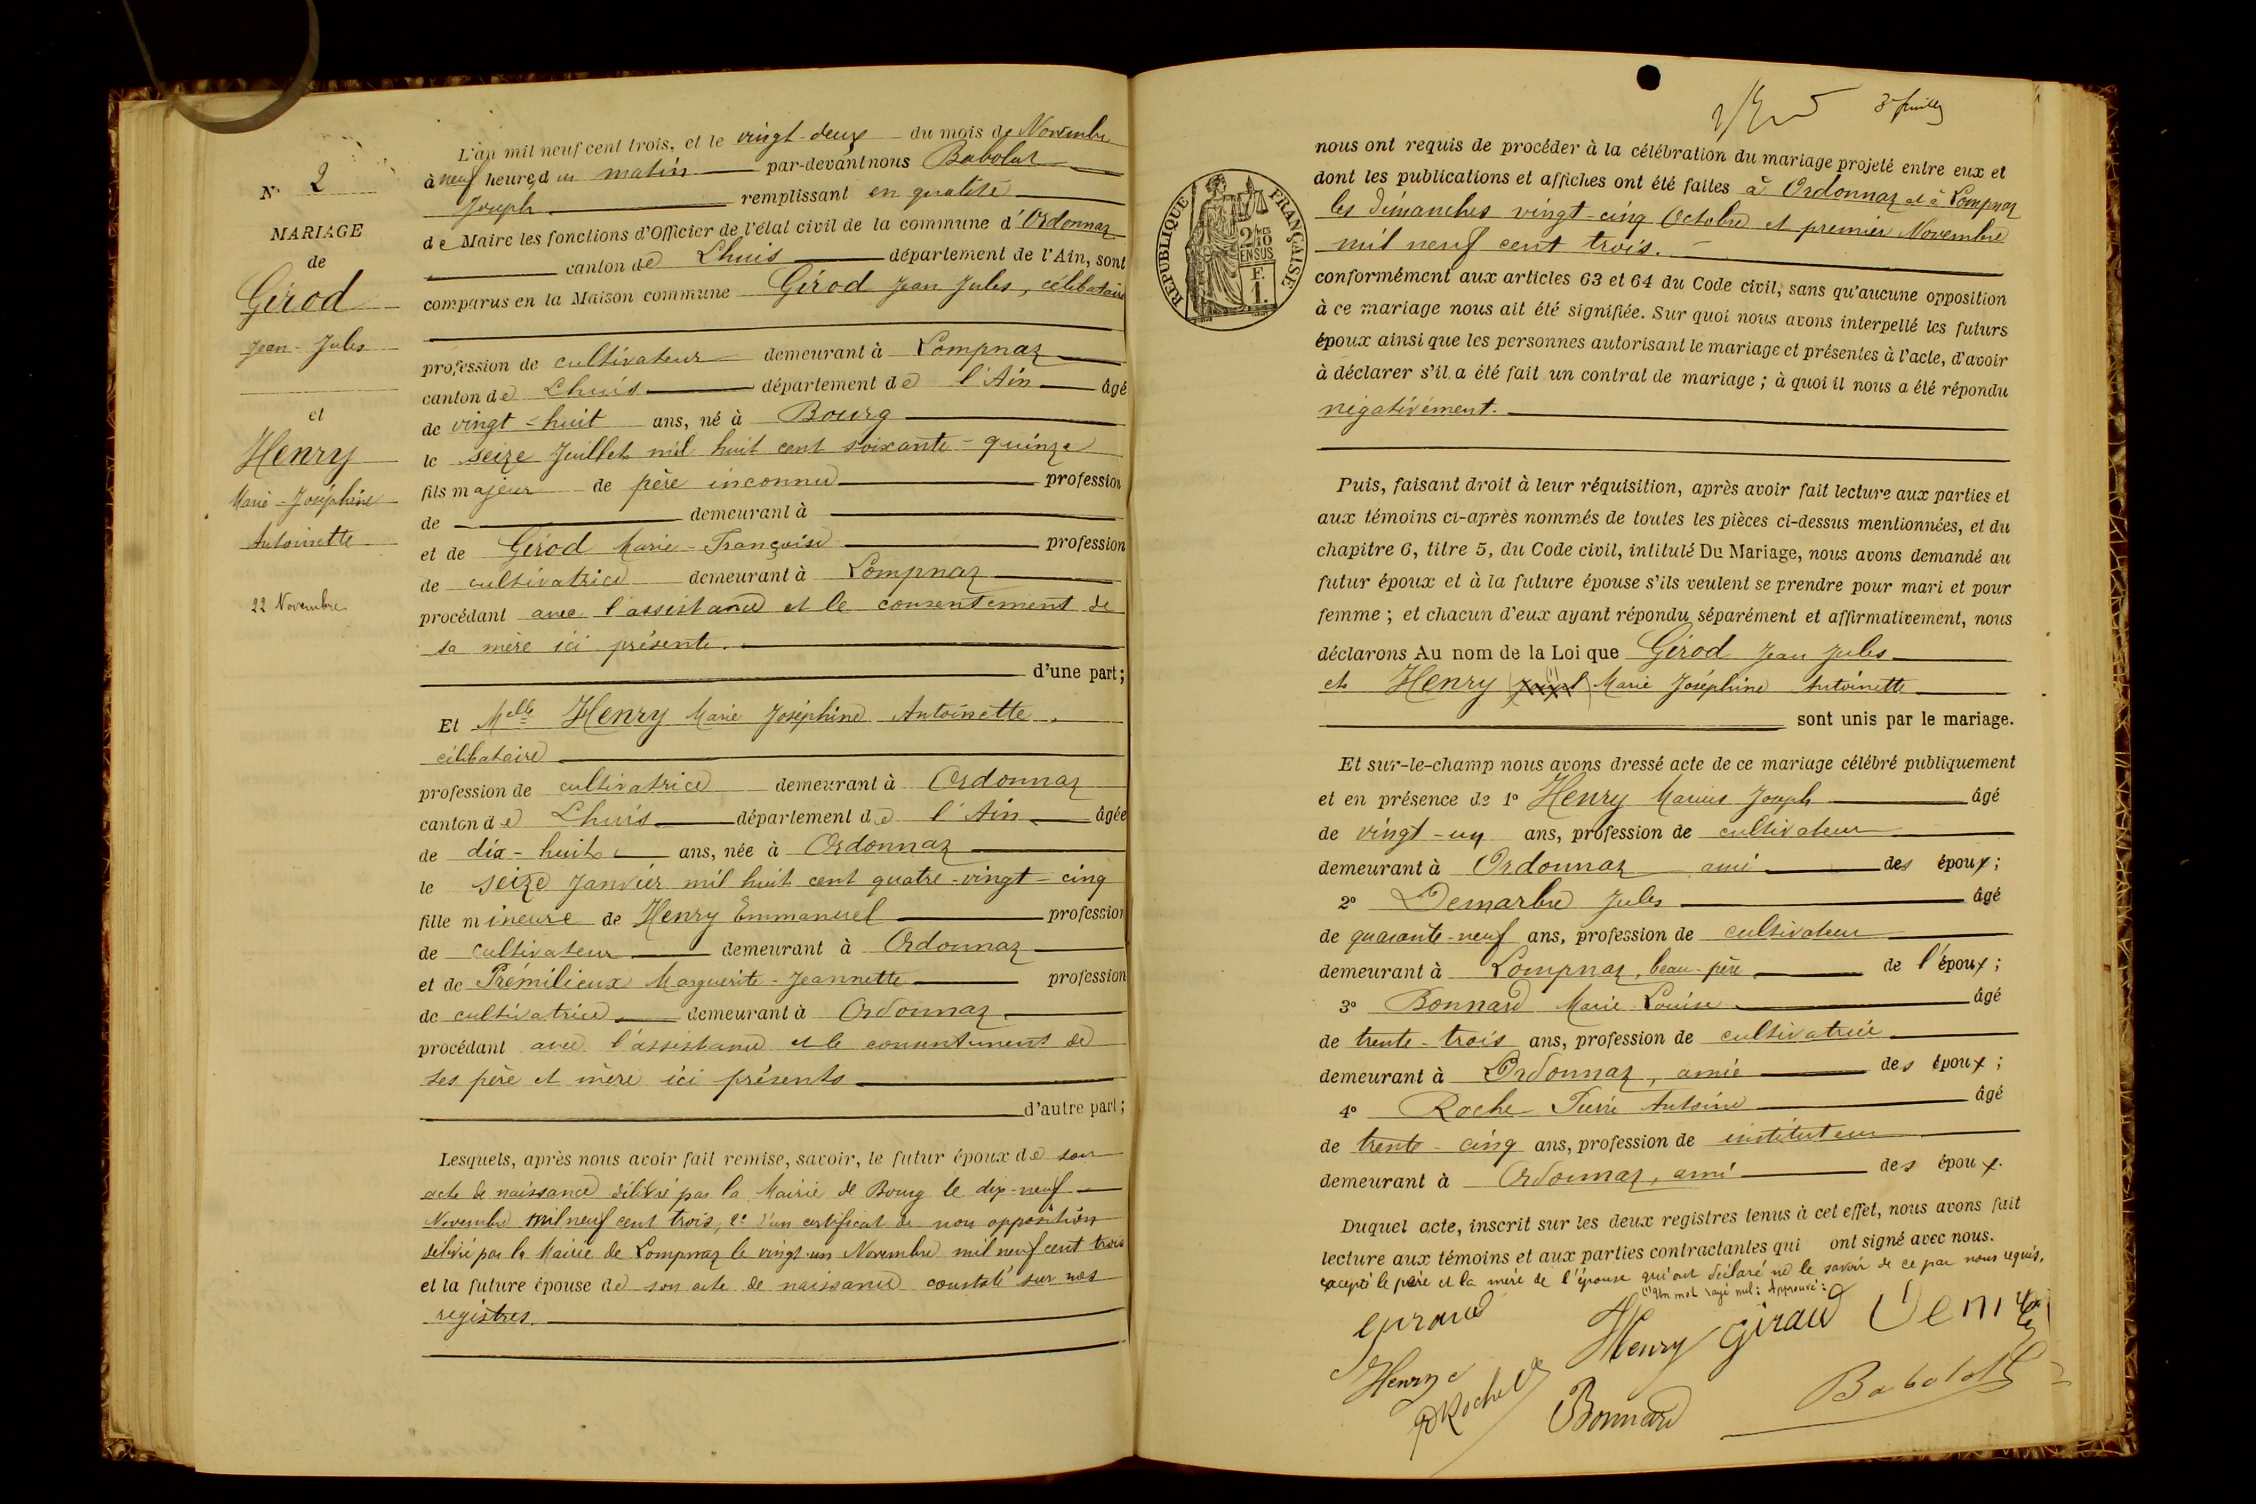 N° 2
MARIAGE
de
Gérod
Jean-Jules
et
Henry
Marie-Joséphine
Antoinette
22 Novembre
L'an mil neuf cent trois, et le vingt-deux du mois de Novembre
à neuf heures du matin par-devant nous Babolat
Joseph remplissant en qualité
de Maire les fonctions d'Officier de l'état civil de la commune d'Ordonnaz
canton de Lhuis département de l'Ain, sont
comparus en la Maison commune Gérod Jean Jules, célibataire
profession de cultivateur demeurant à Lompnaz
canton de Lhuis département de l'Ain âgé
de vingt-huit ans, né à Bourg
le seize Juillet mil huit cent soixante-quinze
fils majeur de père inconnu profession
de demeurant à
et de Gérod Marie-Françoise profession
de cultivatrice demeurant à Lompnaz
procédant avec l'assistance et le consentement de
sa mère ici présente.
d'une part;
Et Melle Henry Marie Joséphine Antoinette.
célibataire
profession de cultivatrice demeurant à Ordonnaz
canton de Lhuis département de l'Ain âgée
de dix-huit ans, née à Ordonnaz
le seize Janvier mil huit cent quatre-vingt-cinq
fille mineure de Henry Emmanuel profession
de cultivateur demeurant à Ordonnaz
et de Prémilieux Marguerite-Jeannette profession
de cultivatrice demeurant à Ordonnaz
procédant avec l'assistance et le consentement de
ses père et mère ici présents
d'autre part;
Lesquels, après nous avoir fait remise, savoir, le futur époux de son
acte de naissance délivré par la Mairie de Bourg le dix-neuf
Novembre mil neuf cent trois, 2° d'un certificat de non opposition
délivré par la Mairie de Lompnaz le vingt-un Novembre mil neuf cent trois
et la future épouse de son acte de naissance constaté sur nos
registres.
3e feuille
RÉPUBLIQUE FRANÇAISE
2/10
EN SUS
F.
1.
nous ont requis de procéder à la célébration du mariage projeté entre eux et
dont les publications et affiches ont été faites à Ordonnaz et à Lompnaz
les dimanches vingt-cinq Octobre et premier Novembre
mil neuf cent trois.
conformément aux articles 63 et 64 du Code civil, sans qu'aucune opposition
à ce mariage nous ait été signifiée. Sur quoi nous avons interpellé les futurs
époux ainsi que les personnes autorisant le mariage et présentes à l'acte, d'avoir
à déclarer s'il a été fait un contrat de mariage; à quoi il nous a été répondu
négativement.
Puis, faisant droit à leur réquisition, après avoir fait lecture aux parties et
aux témoins ci-après nommés de toutes les pièces ci-dessus mentionnées, et du
chapitre 6, titre 5, du Code civil, intitulé Du Mariage, nous avons demandé au
futur époux et à la future épouse s'ils veulent se prendre pour mari et pour
femme; et chacun d'eux ayant répondu séparément et affirmativement, nous
déclarons Au nom de la Loi que Gérod Jean Jules
et Henry Marie Joséphine Antoinette
sont unis par le mariage.
Et sur-le-champ nous avons dressé acte de ce mariage célébré publiquement
et en présence de 1° Henry Marius Joseph âgé
de vingt-un ans, profession de cultivateur
demeurant à Ordonnaz ami des époux;
2° Demarbre Jules âgé
de quarante-neuf ans, profession de cultivateur
demeurant à Lompnaz, beau-père de l'époux;
3° Bonnard Marie Louise âgé
de trente-trois ans, profession de cultivatrice
demeurant à Ordonnaz, amie des époux;
4° Roche Pierre Antoine âgé
de trente-cinq ans, profession de instituteur
demeurant à Ordonnaz, ami des époux.
Duquel acte, inscrit sur les deux registres tenus à cet effet, nous avons fait
lecture aux témoins et aux parties contractantes qui ont signé avec nous.
excepté le père et la mère de l'épouse qui ont déclaré ne le savoir de ce par nous requis.
(1) Un mot rayé nul: Approuvé:
Henry Giraud
Henry
Roche
Bonnard
Babolat